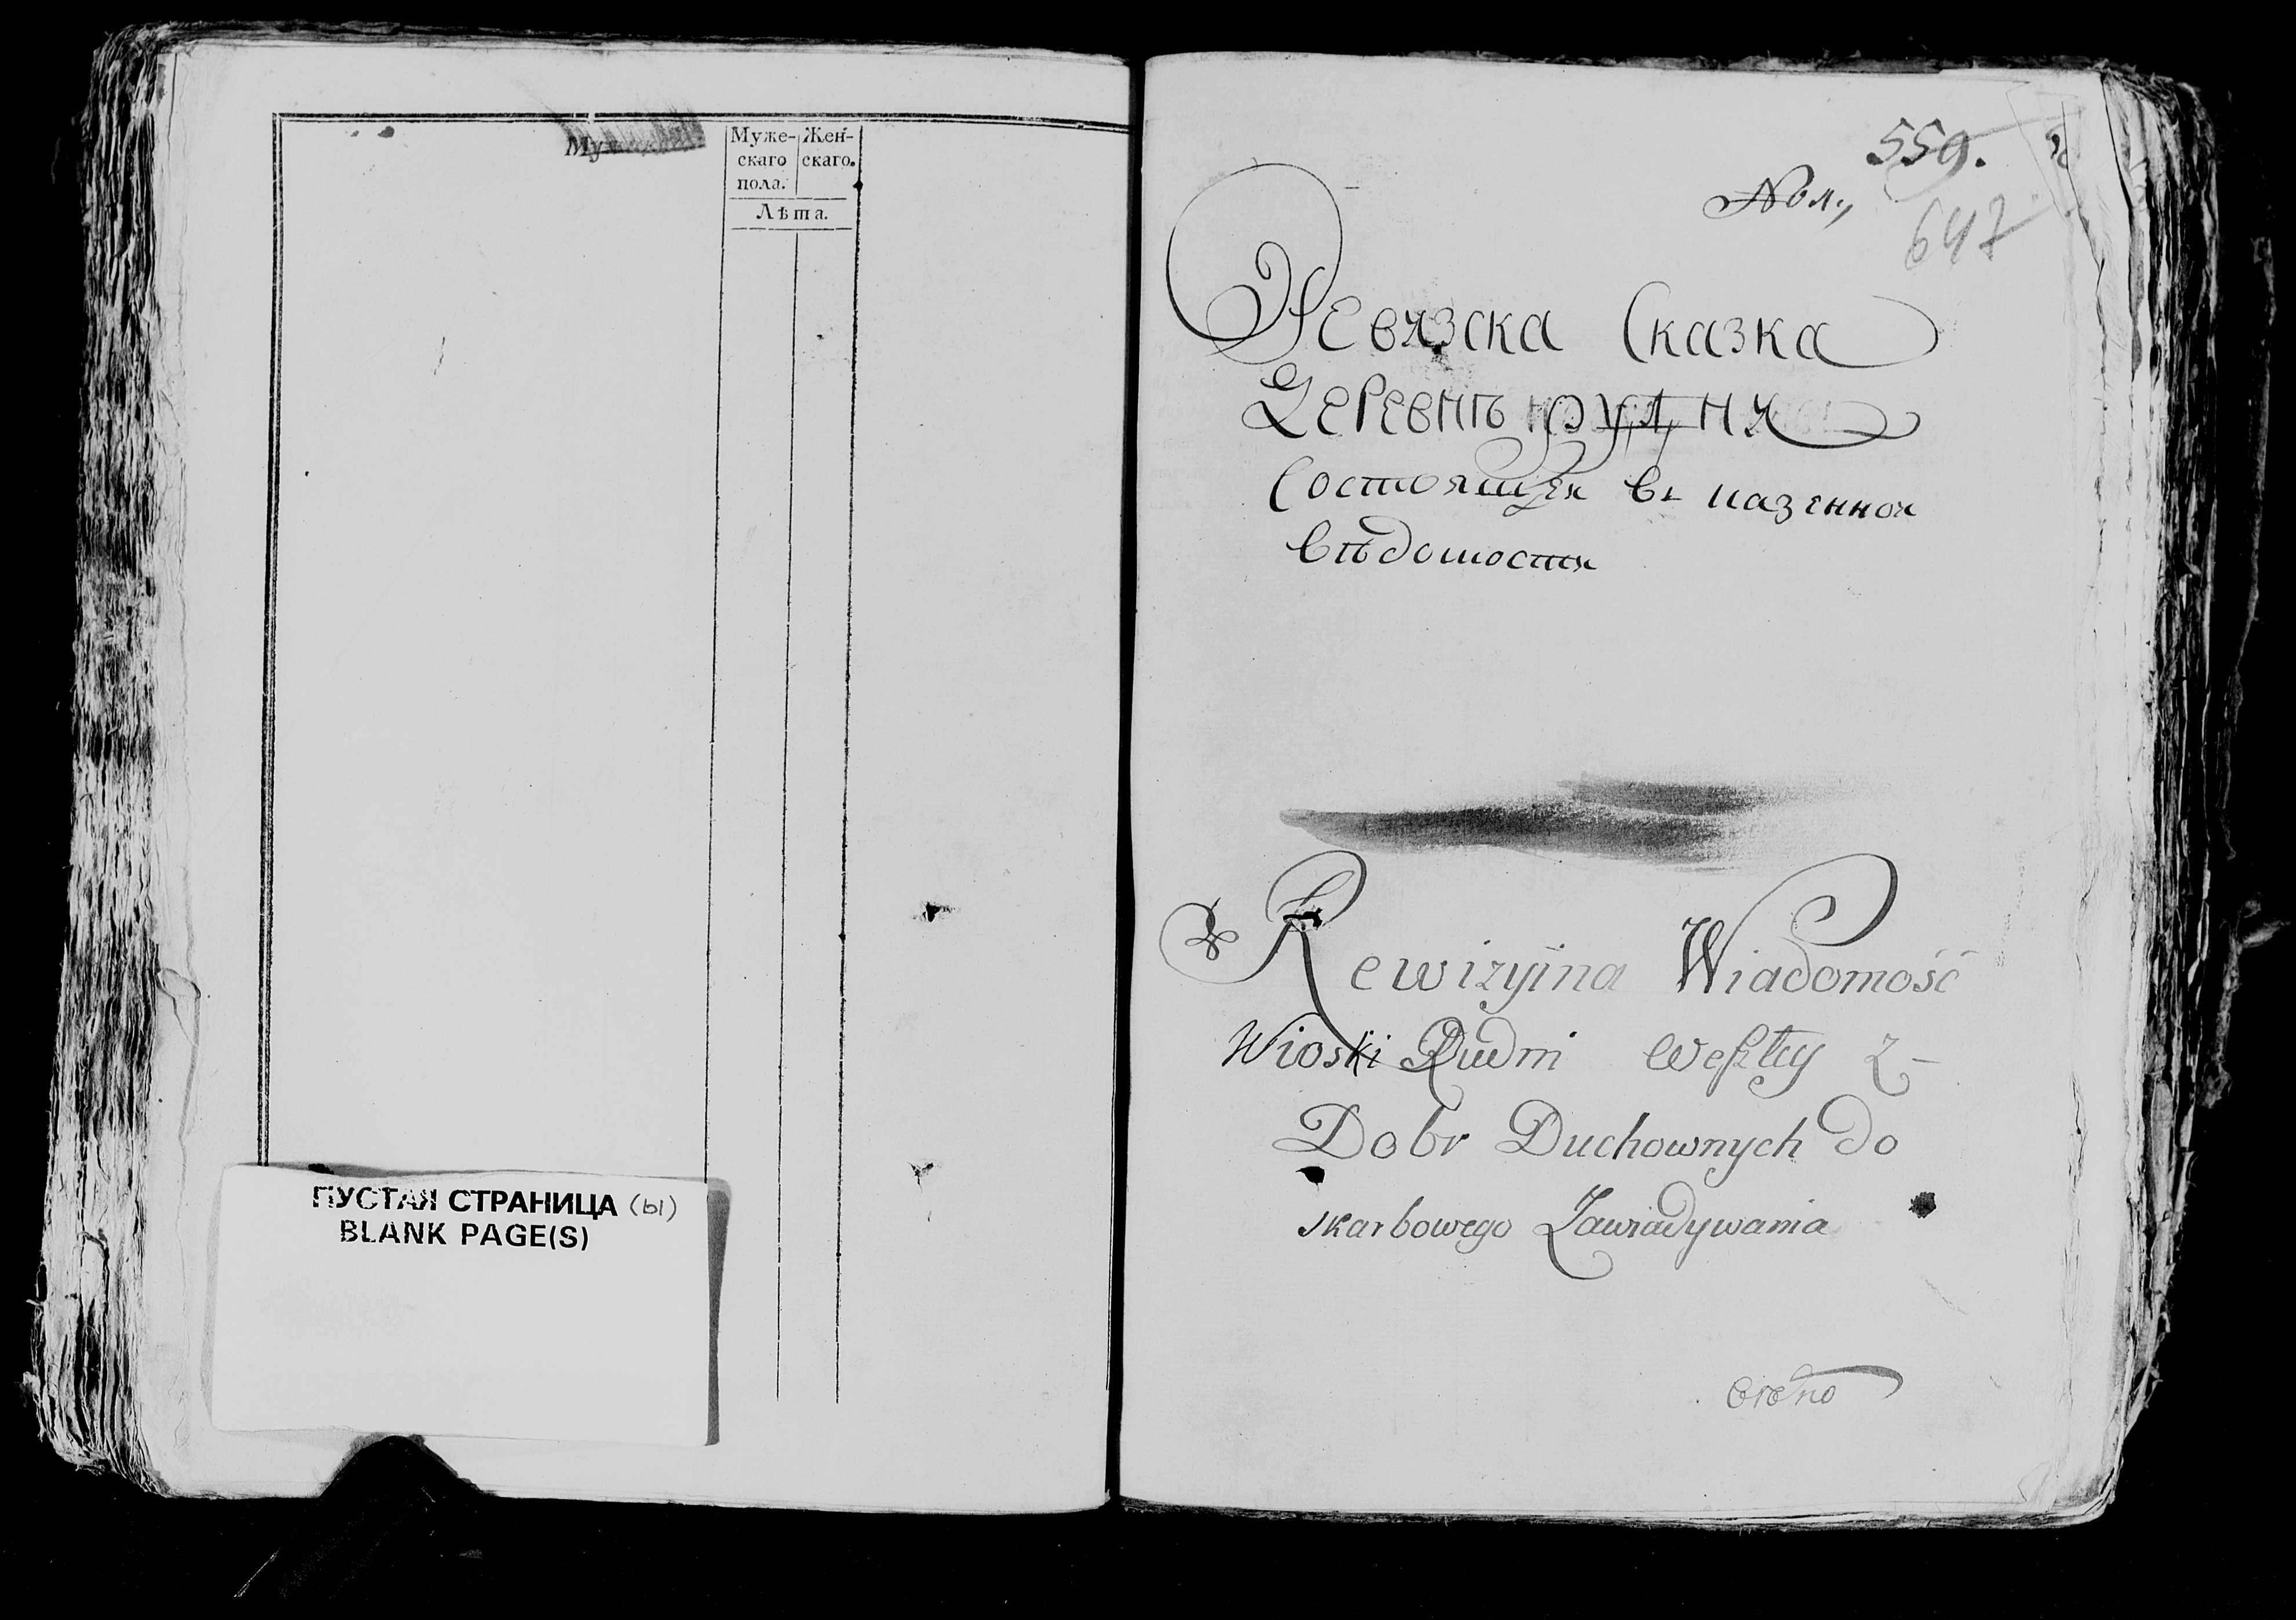 Муже- Жен-
скаго скаго.
пола.
Лѣта.
ПУСТАЯ СТРАНИЦА (ы)
BLANK PAGE(S)
559.
647
Ревязска Сказка
Деревнѣ Рудня
Состоящея въ казенной
вѣдомостя
Rewizyina Wiadomość
Wioski Rudni weszłey z-
Dobr Duchownych do
skarbowego Zawiadywania